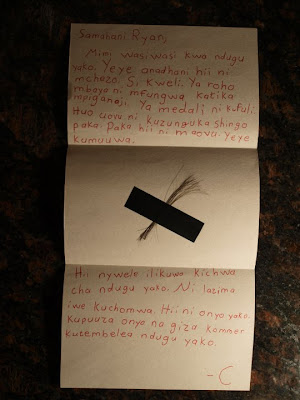 Samahani Ryan,
Mimi wasiwasi kwa ndugu
yako. Yeye anadhani hii ni
mchezo. Si kweli. Ya roho
mbaya ni mfungwa katika
mpiganaji. Ya medali ni kufuli
Huo uovu ni kuzunguka shingo
paka. Paka hii ni maovu. Yeye
kumuuwa.
Hii nywele ilikuwe kichwa
cha ndugu yako. Ni lazima
iwe kuchomwa. Hii ni onyo yako.
Kupuuza onyo na giza kommer
kutembelea ndugu yako.
-C